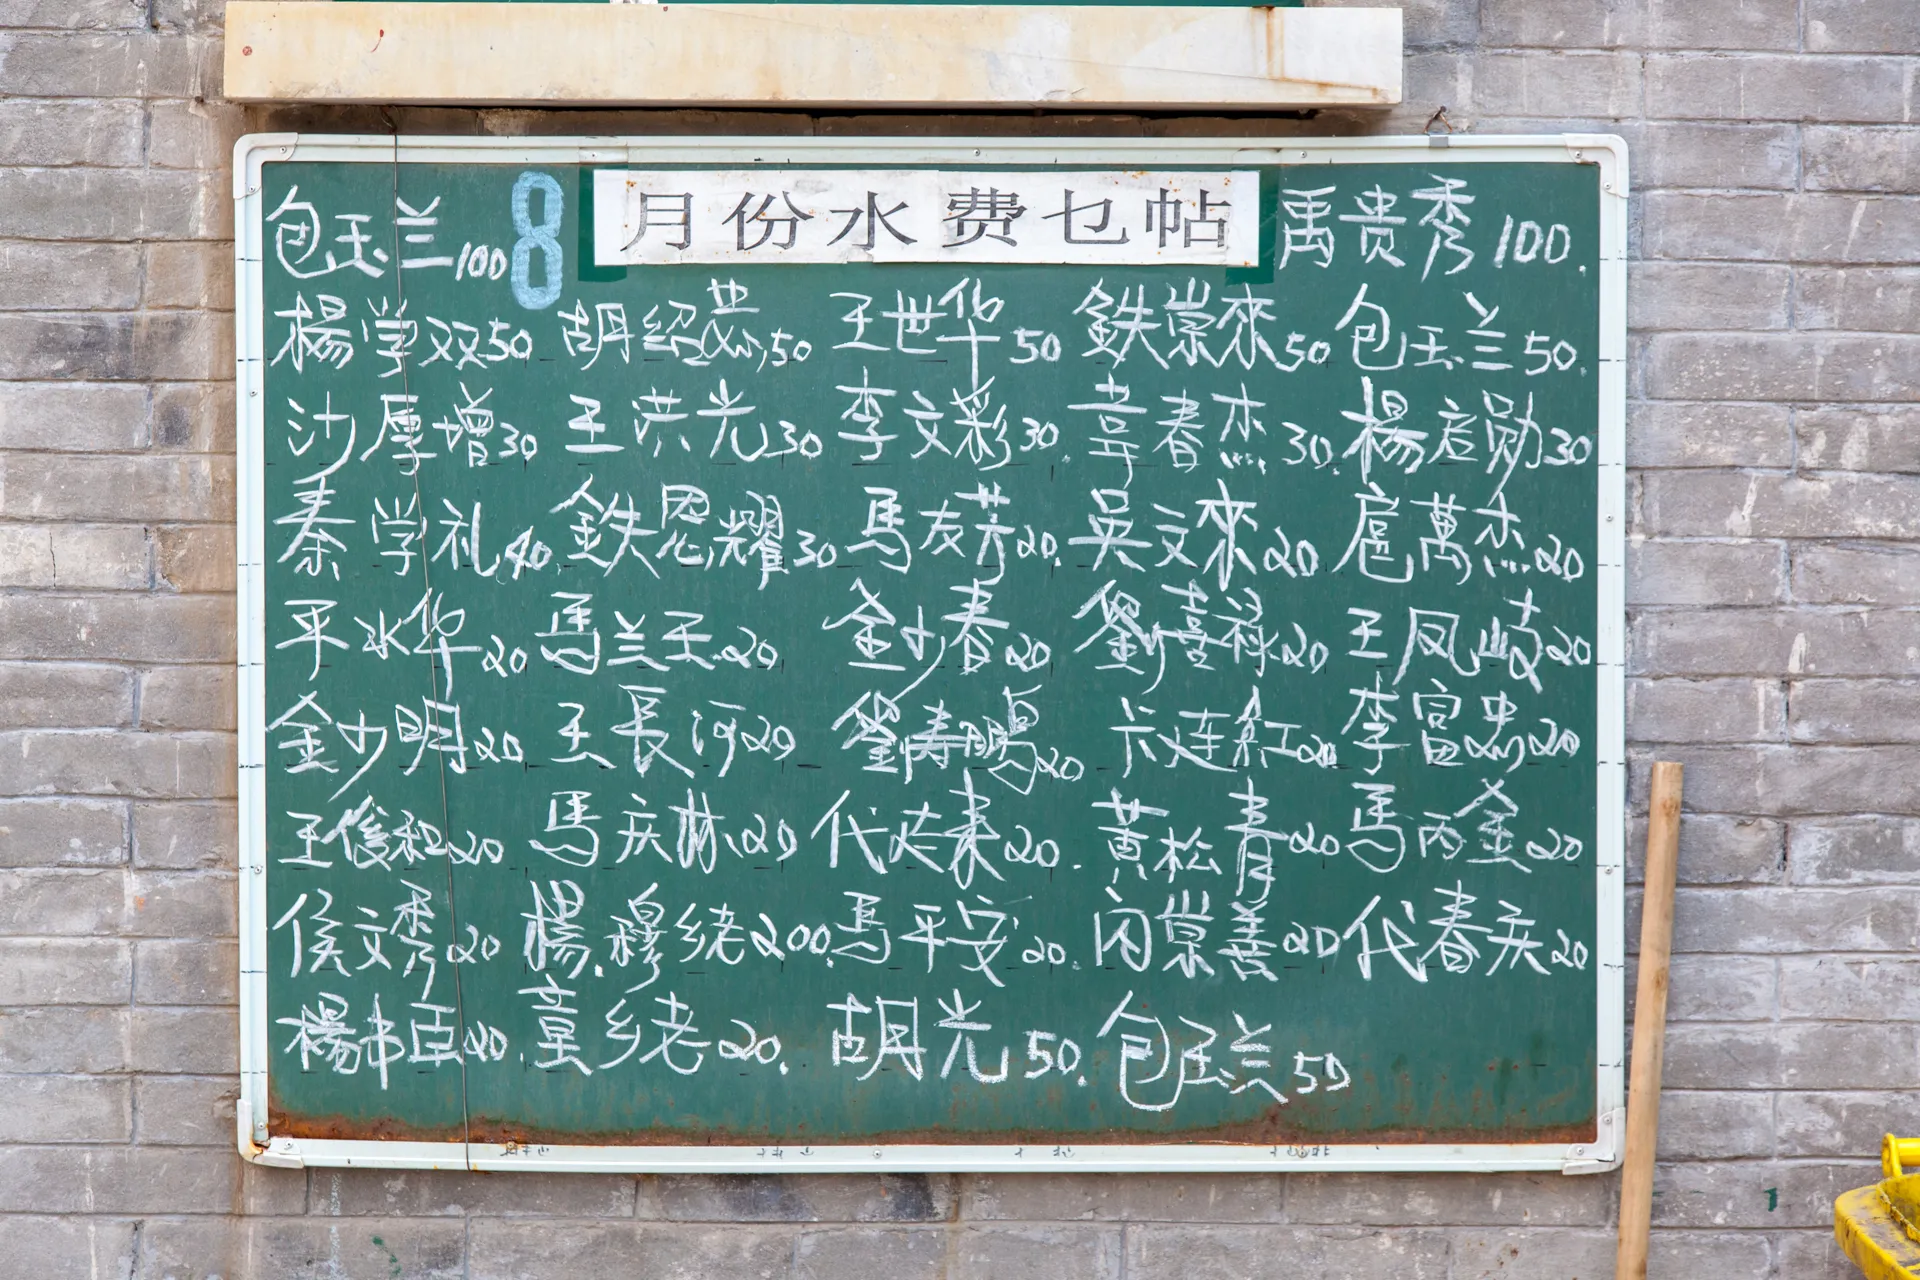 包玉兰100 8月份水费乜帖 禹贵秀100.
楊学双50 胡绍 50 王世华50 鉄棠來50 包玉兰50.
沙厚增30 王洪光30 李文彩30. 春杰30. 楊启勋30
秦学礼40. 鉄恩耀30 馬友芳20. 吴文來20 扈萬杰20
平水华20 馬兰玉.20 金少春20 劉喜禄20 王凤岐20
金少明20 王長河20 劉寿鵬20 卞连紅20 李富忠20
王俊和20 馬庆林20 代 來20. 黄松青20 馬丙金20
侯文秀20 楊.穆乡老200. 馬平安20. 闪棠善20 代春庆20
楊书臣40. 童乡老20. 胡光50. 包玉兰50